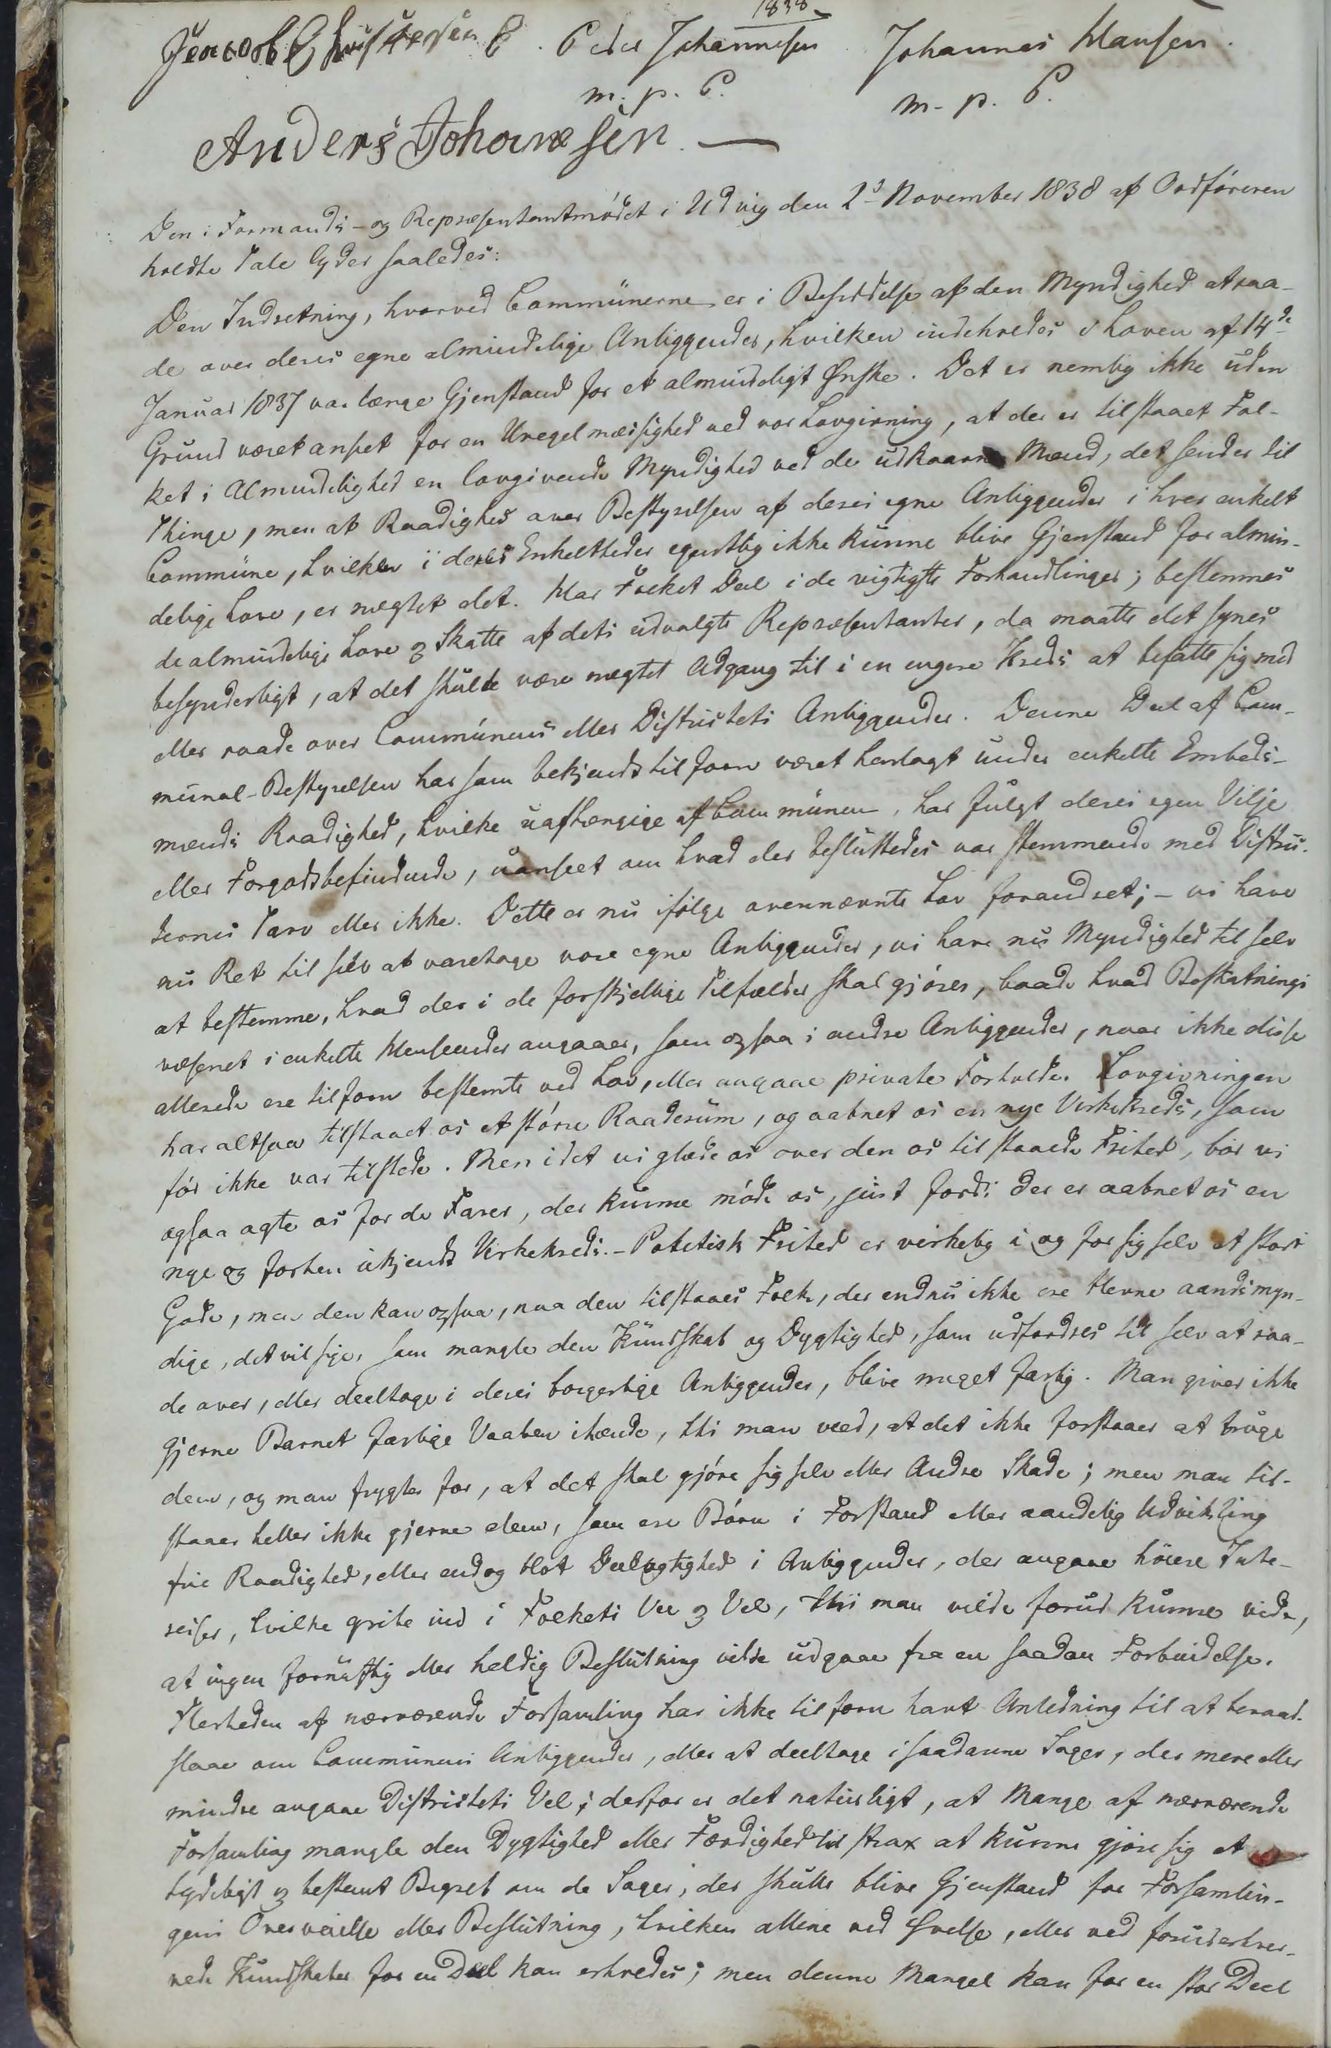 1838
Jacob Christensen E. Peder Johannesen Johannes Hansen.
m. p. P. m. p. P.
Anders Johannesen. —
Den i Formands- og Repræsentantmødet i Udvig den 2d November 1838 af Ordføreren
holdte Tale lyder saaledes:
Den Indretning, hvorved Communerne er i Besiddelse af den Myndighed at raa-
de over deres egne almindelige Anliggender, hvilken indehredes i Loven af 14de
Januar 1837 var længe Gjenstand for et almindeligt Ønske. Det er nemlig ikke uden
Grund været anseet for en Uregelmæssighed ved vor Lovgivning, at der er tilstaaet Fol-
ket i Almindelighed en lovgivende Myndighed ved de udkaarne Mænd, det sender til
Thinge, men at Raadighed over Bestyrelsen af deres egne Anliggender i hver enkelt
Commune, hvilken i deres Enkeltheder egentlig ikke kunne blive Gjenstand for almin-
delige Love, er nægtet det. Har Folket Deel i de vigtigste Forhandlinger; bestemmes
de almindelige Love og Skatte af dets udvalgte Repræsentanter, da maatte det synes
besynderligt, at det skulde være nægtet Adgang til i en engere Kreds at befatte sig med
eller raade over Communens eller Districtets Anliggender. Denne Deel af Com-
munal-Bestyrelsen har som bekjendt tilforn været henlagt under enkelte Embeds-
mænds Raadighed, hvilke uafhængige af Communen, har fulgt deres egen Vilje
eller Forgodtbefindende, uanseet om hvad der besluttedes var stemmende med Distric-
ternes Tarv eller ikke. Dette er nu ifølge ovennævnte Lov forandret; – vi have
nu Ret til selv at varetage vore egne Anliggender, vi have nu Myndighed til selv
at bestemme, hvad der i de forskjellige Tilfælde skal gjøres, baade hvad Beskatnings
væsenet i enkelte Henseender angaaer, som ogsaa i andre Anliggender, naar ikke disse
allerede ere tilforn bestemte ved Lov, eller angaae private Forholde. Lovgivningen
har altsaa tilstaaet os et større Raaderum, og aabnet os en nye Virkekreds, som
før ikke var tilstede. Men idet vi glæde os over den os tilstaaede Frihed, bør vi
ogsaa agte os for de Farer, der kunne møde os, just fordi der er aabnet os en
nye og forhen ukjendt Virkekreds. – Politisk Frihed er virkelig i og for sig selv et stort
Gode, men den kan ogsaa, naar den tilstaaes Folk, der endnu ikke ere blevne aandsmyn-
dige, det vil sige, som mangle den Kundskab og Dygtighed, som udfordres til selv at raa-
de over, eller deeltage i deres borgerlige Anliggender, blive meget farlig. Man giver ikke
gjerne Barnet farlige Vaaben ihænde, thi man veed, at det ikke forstaaer at bruge
dem, og man frygter for, at det skal gjøre sig selv eller Andre Skade; men man til-
staaer heller ikke gjerne dem, som ere Børn i Forstand eller aandelig Udvikling
frie Raadighed, eller endog blot Deelagtighed i Anliggender, der angaae høiere Inte-
resser, hvilke gribe ind i Folkets Vee og Vel, thi man vilde forud kunne vide,
at ingen fornuftig eller heldig Beslutning vilde udgaae fra en saadan Forbindelse.
Flerheden af nærværende Forsamling har ikke tilforn havt Anledning til at beraad-
slaae om Communens Anliggender, eller at deeltage i saadanne Sager, der mere eller
mindre angaae Districtets Vel; derfor er det naturligt, at Mange af nærværende
Forsamling mangle den Dygtighed eller Færdighed til strax at kunne gjøre sig et
tydeligt og bestemt Begreb om de Sager, der skulle blive Gjenstand for Forsamlin-
gens Overveielse eller Beslutning, hvilken allene ved Øvelse, eller ved foruderhver-
vede Kundskaber for en Deel kan erhverves; men denne Mangel kan for en stor Deel